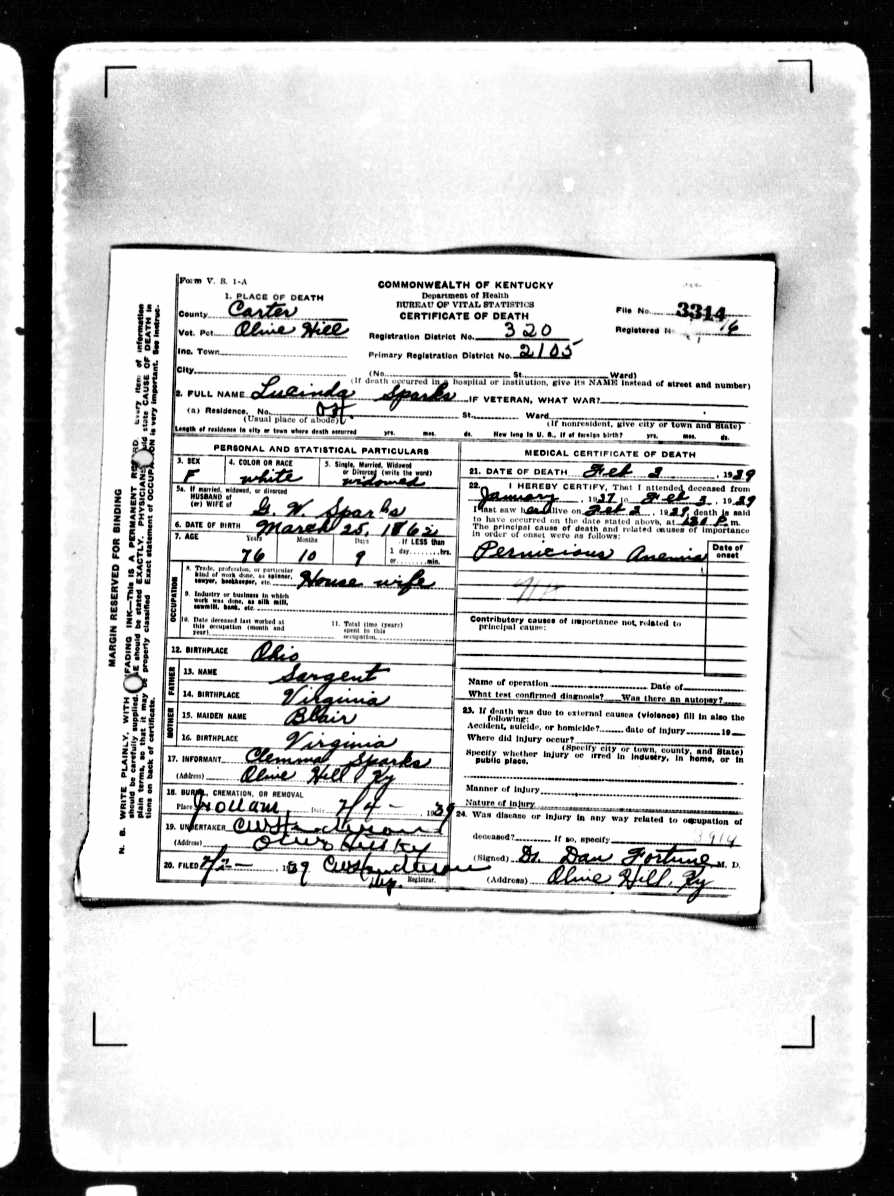 Form V. S. 1-A
COMMONWEALTH OF KENTUCKY
Department of Health
BUREAU OF VITAL STATISTICS
CERTIFICATE OF DEATH
File No. 3314
Registered No. 16
1. PLACE OF DEATH
County Carter
Vot. Pct. Olive Hill
Inc. Town
City
Registration District No. 320
Primary Registration District No. 2105
(No. St. Ward)
(If death occurred in a hospital or institution, give its NAME instead of street and number)
2. FULL NAME Lucinda Sparks IF VETERAN, WHAT WAR?
(a) Residence. No. St. Ward
(Usual place of abode) (If nonresident, give city or town and State)
Length of residence in city or town where death occurred yrs. mos. ds. How long in U. S., if of foreign birth? yrs. mos. ds.
PERSONAL AND STATISTICAL PARTICULARS
3. SEX
F
4. COLOR OR RACE
white
5. Single, Married, Widowed
or Divorced (write the word)
widowed
5a. If married, widowed, or divorced
HUSBAND of
(or) WIFE of G. W. Sparks
6. DATE OF BIRTH March 25, 1862
7. AGE Years Months Days If LESS than
76 10 9 1 day, hrs.
or min.
OCCUPATION
8. Trade, profession, or particular
kind of work done, as spinner,
sawyer, bookkeeper, etc. House wife
9. Industry or business in which
work was done, as silk mill,
sawmill, bank, etc.
10. Date deceased last worked at
this occupation (month and
year)
11. Total time (years)
spent in this
occupation
12. BIRTHPLACE Ohio
FATHER
13. NAME Sargent
14. BIRTHPLACE Virginia
MOTHER
15. MAIDEN NAME Blair
16. BIRTHPLACE Virginia
17. INFORMANT Clemma Sparks
(Address) Olive Hill Ky
18. BURIAL, CREMATION, OR REMOVAL
Place Date 2/4- , 1939
19. UNDERTAKER
(Address) Olive Hill Ky
20. FILED , 1939
Registrar.
MEDICAL CERTIFICATE OF DEATH
21. DATE OF DEATH Feb 2 , 1939
22. I HEREBY CERTIFY, That I attended deceased from
January , 1937 to Feb 2 , 1939
I last saw her alive on Feb 2 , 1939 death is said
to have occurred on the date stated above, at P. m.
The principal cause of death and related causes of importance
in order of onset were as follows:
Date of
onset
Pernicious Anemia
Contributory causes of importance not related to
principal cause:
Name of operation Date of
What test confirmed diagnosis? Was there an autopsy?
23. If death was due to external causes (violence) fill in also the
following:
Accident, suicide, or homicide? date of injury 19
Where did injury occur?
(Specify city or town, county, and State)
Specify whether injury occurred in industry, in home, or in
public place.
Manner of injury
Nature of injury
24. Was disease or injury in any way related to occupation of
deceased? If so, specify
(Signed) Dr. Dan Fortune M. D.
(Address) Olive Hill, Ky
MARGIN RESERVED FOR BINDING
N. B. WRITE PLAINLY, WITH UNFADING INK—THIS IS A PERMANENT RECORD. Every item of information
should be carefully supplied. AGE should be stated EXACTLY. PHYSICIANS should state CAUSE OF DEATH in
plain terms, so that it may be properly classified. Exact statement of OCCUPATION is very important. See instruc-
tions on back of certificate.